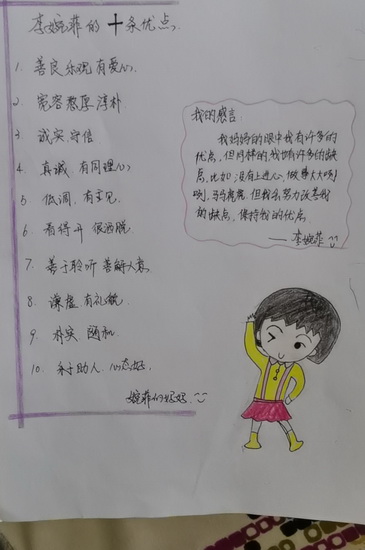 李婉菲的十条优点
1. 善良 乐观 有爱心
2. 宽容 憨厚 淳朴
3. 诚实 守信
4. 真诚 有同理心
5. 低调 有主见
6. 看得开 很洒脱
7. 善于聆听 善解人意
8. 谦虚 有礼貌
9. 朴实 随和
10. 乐于助人 心态好
婉菲的妈妈
我的感言
我妈妈的眼中我有许多的
优点，但同样的，我也有许多的缺
点，比如：没有上进心，做事大大咧
咧，马马虎虎，但我会努力改善我
的缺点，保持我的优点。
——李婉菲